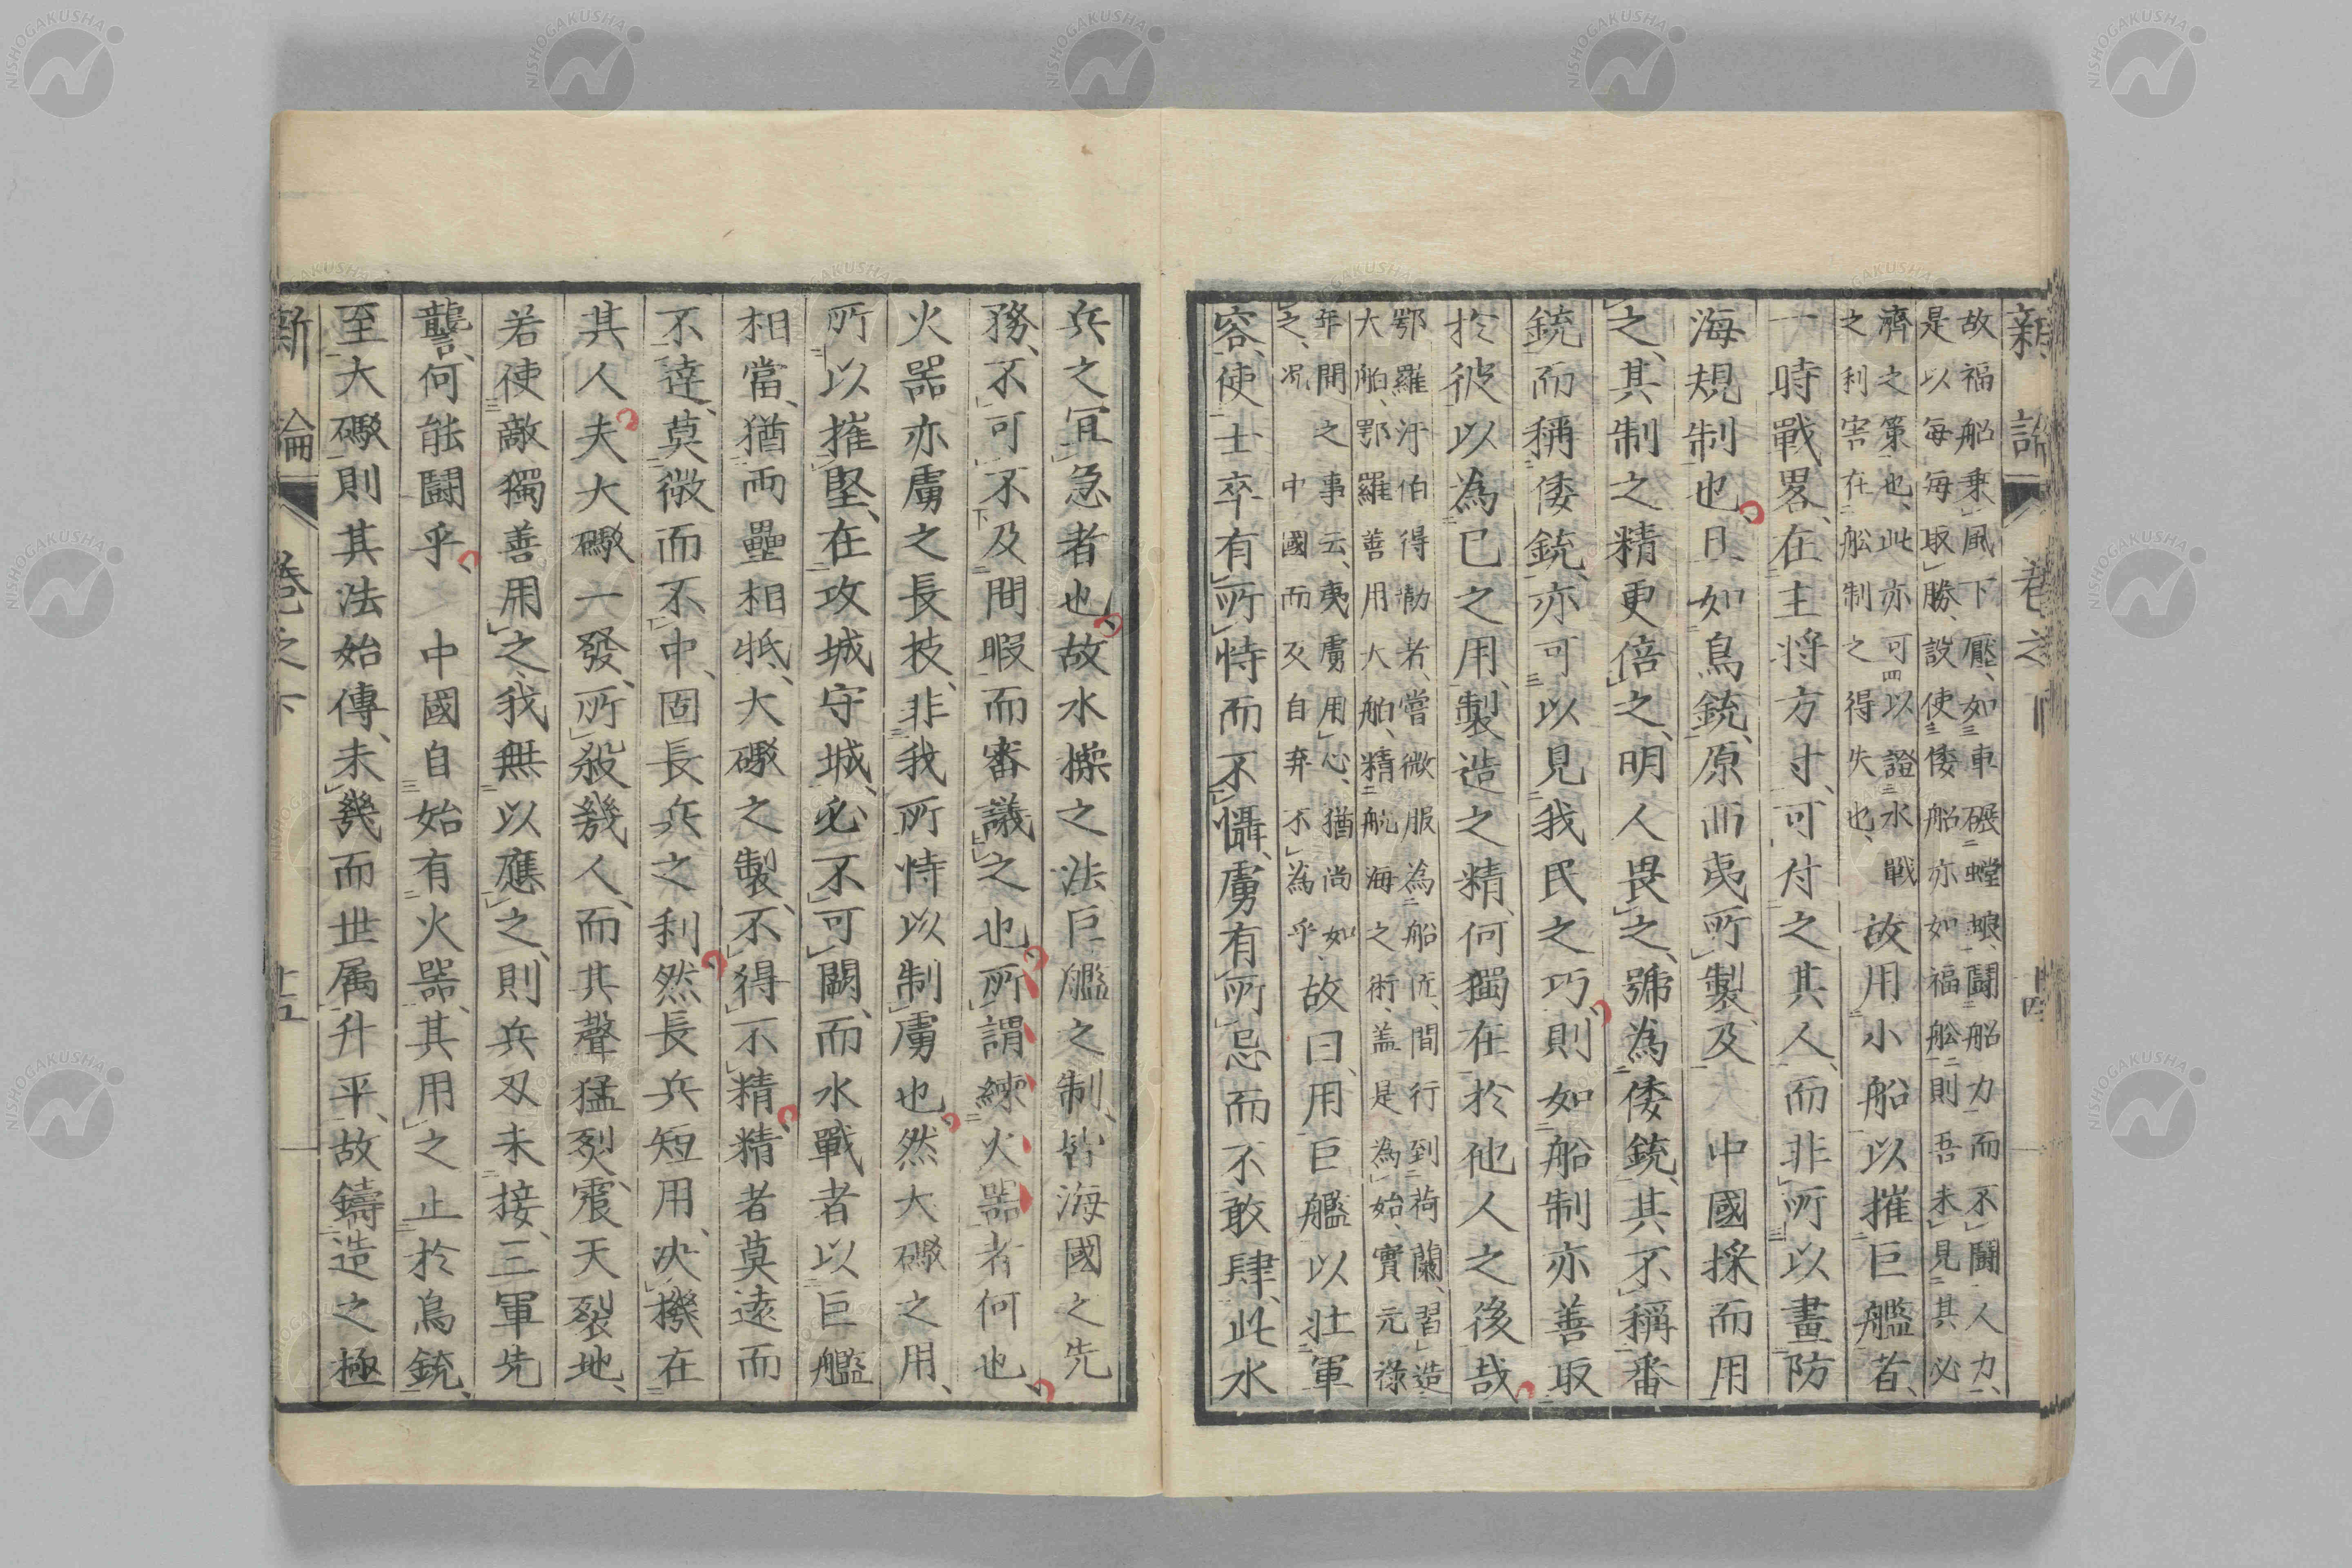 新論 卷之下 十四
故福船乘風下壓、如車碾螳蜋、鬪船力而不鬪人力、
是以每每取勝、設使倭船亦如福舩、則吾未見其必
濟之策也、此亦可以證水戰
之利害在舩制之得失也、故用小船以摧巨艦者、
一時戰畧、在主將方寸、可付之其人、而非所以畫防
海規制也、且如鳥銃、原西夷所製、及中國採而用
之、其制之精更倍之、明人畏之、號為倭銃、其不稱番
銃而稱倭銃、亦可以見我民之巧、則如船制亦善取
於彼以為己之用、製造之精、何獨在於他人之後哉
鄂羅汙伯得勒者、嘗微服為船匠、間行到荷蘭、習造
大舶、鄂羅善用大舶、精航海之術、蓋是為始、實元祿
年間之事云、夷虜用心、猶尚如
之、况中國而反自弃不為乎、故曰、用巨艦以壯軍
容、使士卒有所恃而不懾、虜有所忌而不敢肆、此水
兵之宜急者也、故水操之法、巨艦之制、皆海國之先
務、不可不及間暇而審議之也、所謂練火器者何也、
火器亦虜之長技、非我所恃以制虜也、然大礮之用、
所以摧堅、在攻城守城、必不可闕、而水戰者以巨艦
相當、猶両壘相牴、大礮之製、不得不精、精者莫遠而
不達、莫微而不中、固長兵之利、然長兵短用、决撥在
其人、夫大礮一發、所殺幾人、而其聲猛烈、震天裂地、
若使敵獨善用之、我無以應之、則兵刃未接、三軍先
讋、何能鬪乎、中國自始有火器、其用之止於鳥銃、
至大礮則其法始傳、未幾而世属升平、故鑄造之極
新論 卷之下 十五